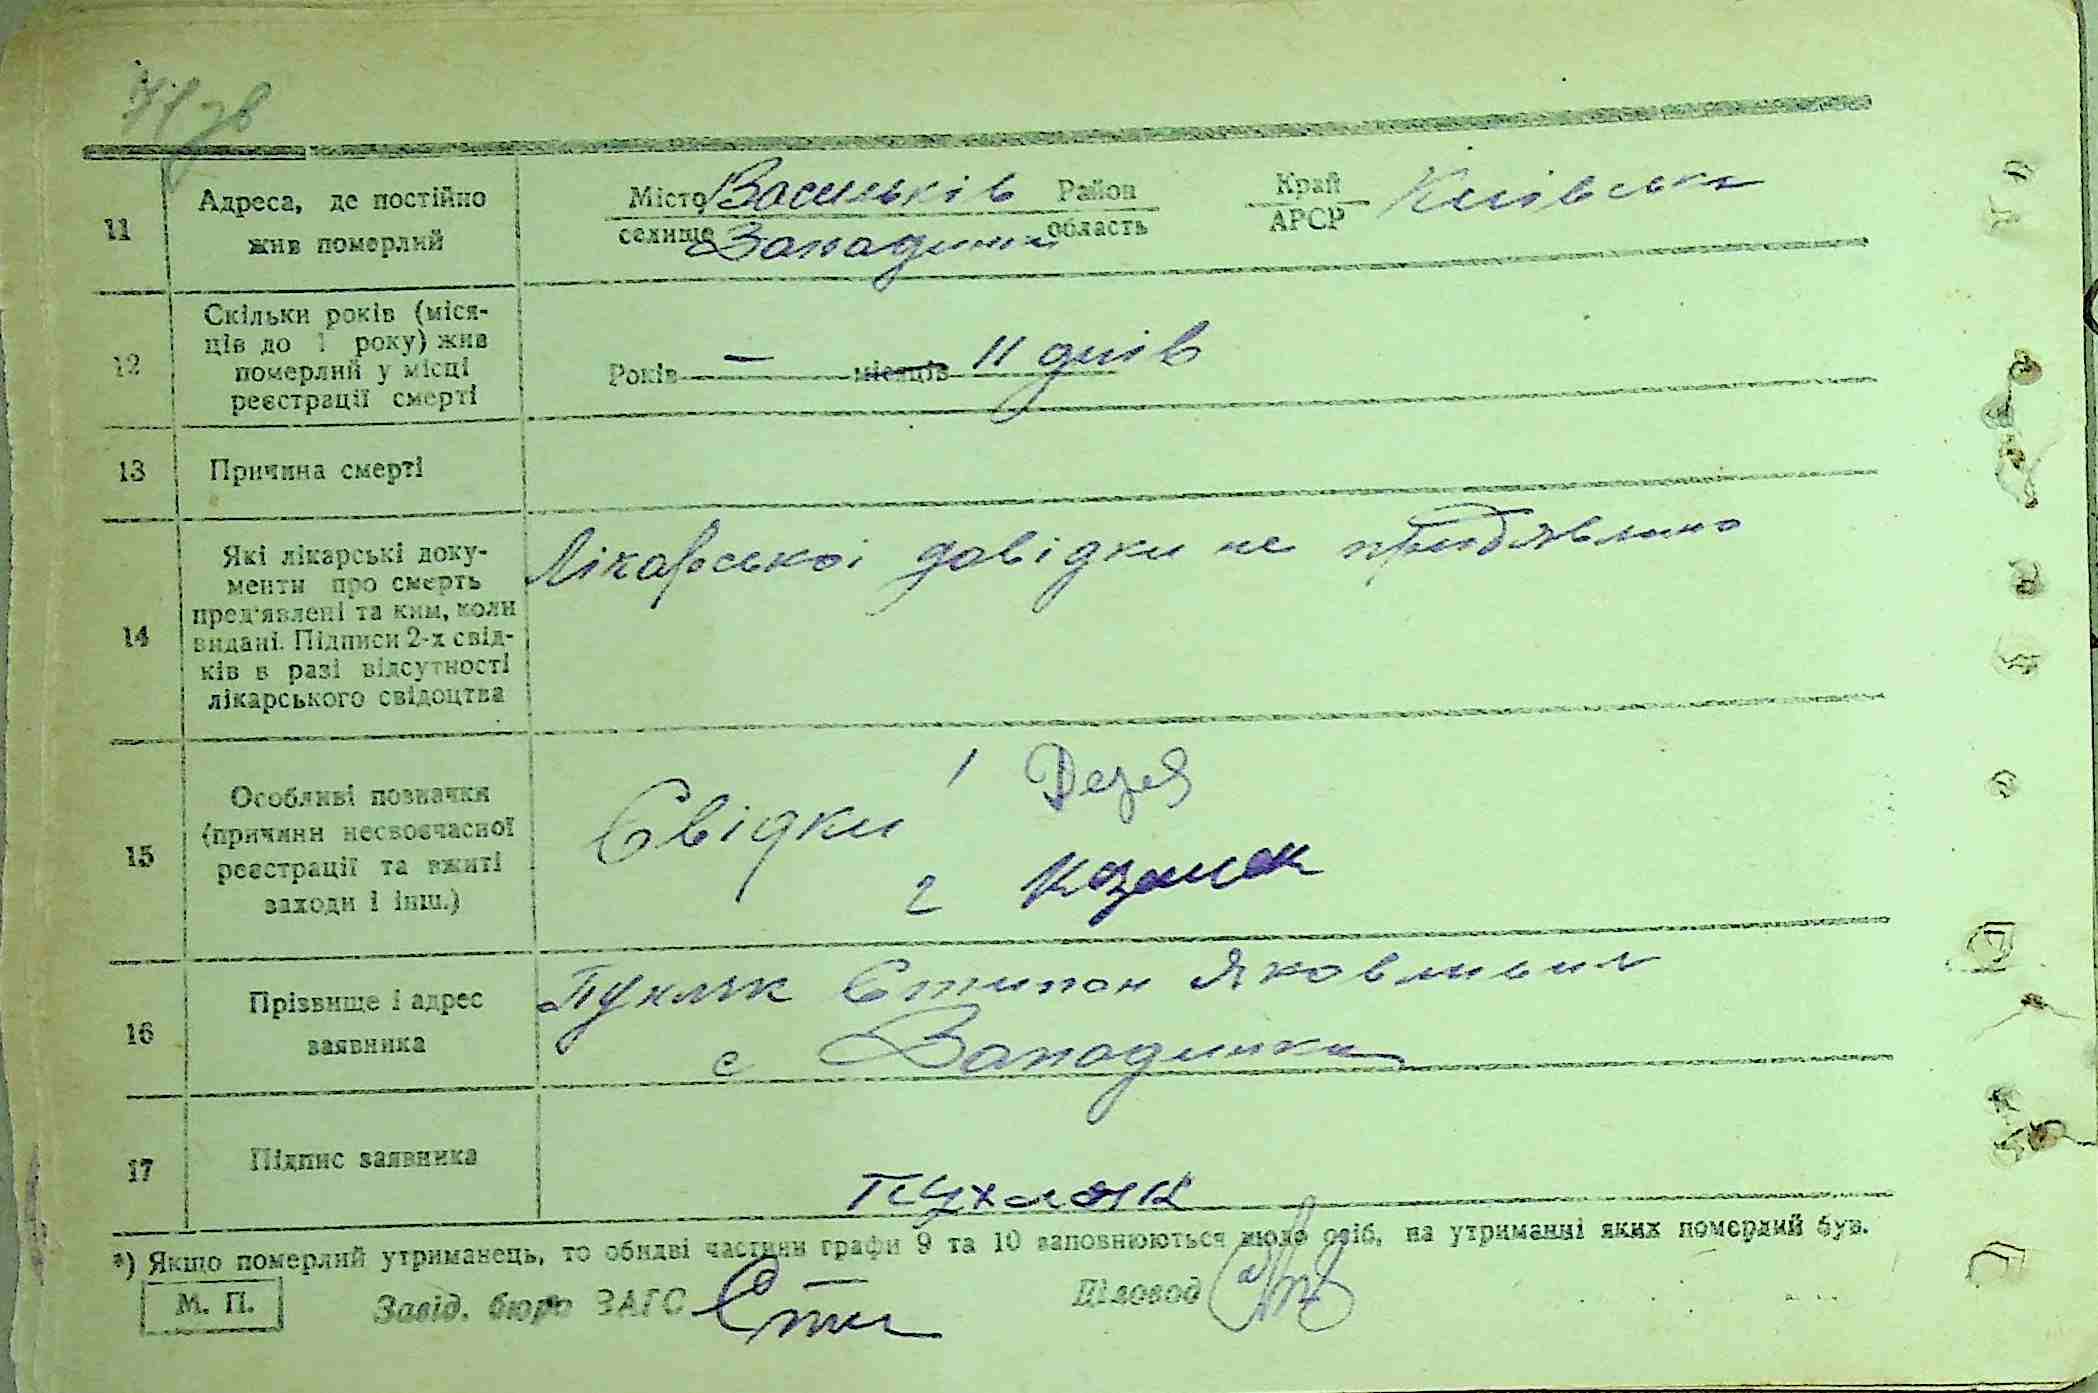 11 Адреса, де постійно
жив померлий
Місто Васильків Район Край Київська
селище Западинка область АРСР
12 Скільки років (міся-
ців до 1 року) жив
померлий у місці
реєстрації смерті
Років — місяців 11 днів
13 Причина смерті
14 Які лікарські доку-
менти про смерть
пред'явлені та ким, коли
видані. Підписи 2-х свід-
ків в разі відсутності
лікарського свідоцтва
Лікарської довідки не
15 Особливі позначки
(причини несвоєчасної
реєстрації та вжиті
заходи і інш.)
Свідки 1
2
16 Прізвище і адрес
заявника
Пухляк Степан Якович
с Западинка
17 Підпис заявника
Пухляк
*) Якщо померлий утриманець, то обидві частини графи 9 та 10 заповнюються щодо осіб, на утриманні яких померлий був.
М. П. Завід. бюро ЗАГС Діловод